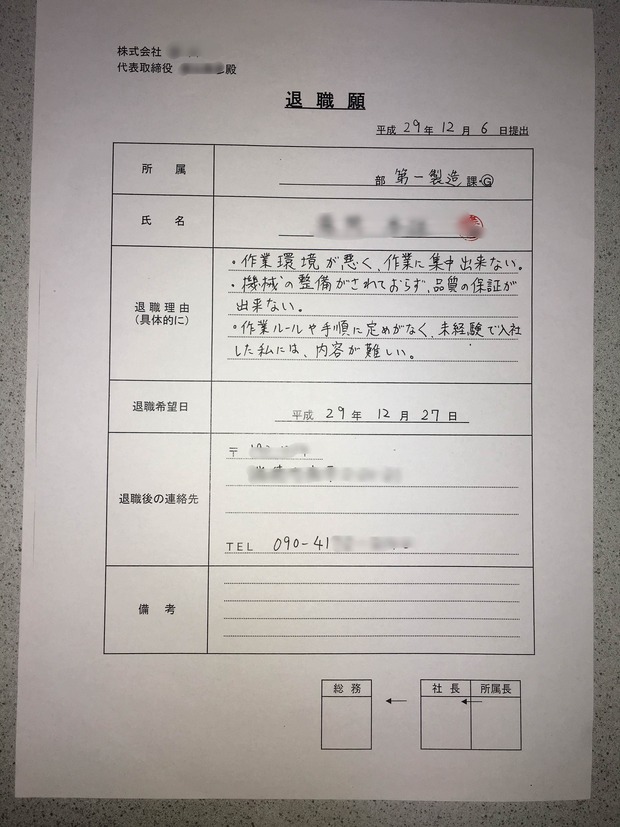 株式会社
代表取締役 殿
退職願
平成 29 年 12 月 6 日提出
所属 部 第一製造 課・G
氏名
退職理由
(具体的に)
・作業環境が悪く、作業に集中出来ない。
・機械の整備がされておらず、品質の保証が
出来ない。
・作業ルールや手順に定めがなく、未経験で入社
した私には、内容が難しい。
退職希望日 平成 29 年 12 月 27 日
退職後の連絡先
〒
TEL 090-41
備考
総務 ← 社長 ← 所属長